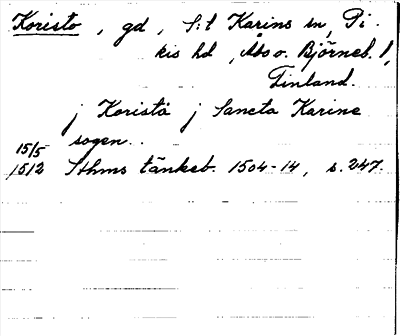 Koristo, gd, S:t Karins sn, Pi-
kis hd, Åbo o. Björneb. l,
Finland.
j Koristå j Sancta Karine
sogen..
15/5
1512 Sthms tänkeb. 1504-14, s. 247.